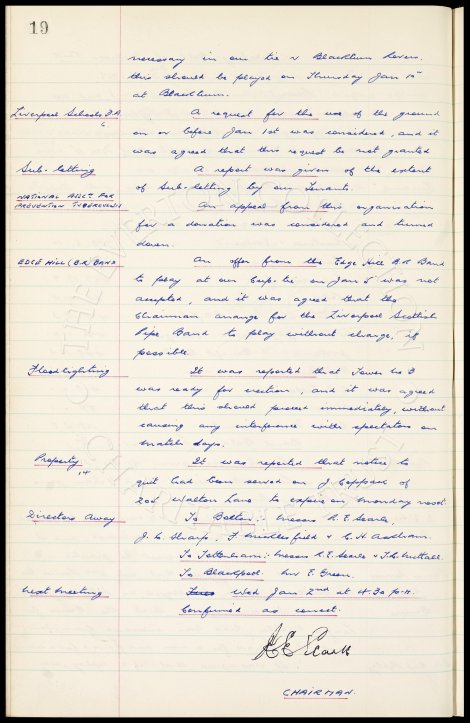 19
necessary in our tie v Blackburn Rovers.
this should be played on Thursday Jan 10th
at Blackburn.
Liverpool Schools F.A. A request for the use of the ground
on or before Jan 1st was considered, and it
was agreed that this request be not granted
Sub-letting A report was given of the extent
of sub-letting by our Tenants.
NATIONAL ASSCn. FOR
PREVENTION TUBERCULOSIS An appeal from this organisation
for a donation was considered and turned
down.
EDGE HILL (B.R.) BAND An offer from the Edge Hill B.R. Band
to play at our Cup-tie on Jan 5 was not
accepted, and it was agreed that the
Chairman arrange for the Liverpool Scottish
Pipe Band to play without charge, if
possible.
Floodlighting It was reported that Tower No 3
was ready for erection, and it was agreed
that this should proceed immediately, without
causing any interference with spectators on
match days.
Property It was reported that notice to
quit had been served on J. Coppack of
Walton Lane to expire on Monday next.
Directors Away To Bolton:- Messrs R. E. Searle,
J. C. Sharp, F. Micklesfield & C. H. Askham.
To Tottenham:- Messrs R. E. Searle & T.C. Nuttall.
To Blackpool. Mr E. Green.
Next Meeting Wed Jan 2nd at 4.30 p.m.
Confirmed as correct.
CHAIRMAN.